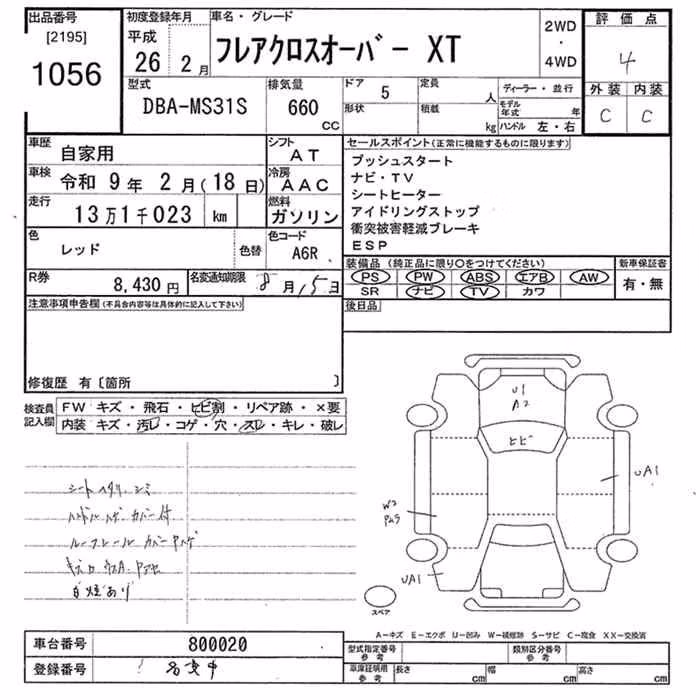 出品番号 初度登録年月 車名・グレード 2WD・4WD 評価点
[2195] 1056 平成 26 2月 フレアクロスオーバー XT 4
型式 排気量 ドア 5 定員 人 ディーラー・並行 外装 内装
DBA-MS31S 660 CC 形状 積載 kg モデル年式 年 ハンドル 左・右 C C
車歴 自家用 シフト AT セールスポイント(正常に機能するものに限ります)
車検 令和 9年 2月(18日) 冷房 AAC プッシュスタート
ナビ・TV
走行 13万1千023 km 燃料 ガソリン シートヒーター
アイドリングストップ
色 レッド 色替 色コード A6R 衝突被害軽減ブレーキ
ESP
R券 8,430円 名変通知期限 8月15日 装備品(純正品に限り○をつけてください) 新車保証書
PS PW ABS エアB AW 有・無
SR ナビ TV カワ
注意事項申告欄(不具合内容等は具体的に記入して下さい) 後日品
修復歴 有〔箇所 〕
検査員記入欄 FW キズ・飛石・ヒビ割・リペア跡・×要
内装 キズ・汚レ・コゲ・穴・スレ・キレ・破レ
U1
A2
ヒビ
UA1
W2
UA1
シートヘタリ、シミ
ハンドルハゲ カバー付
ルーフレール カバー
スペア
A-キズ E-エクボ U-凹み W-補修跡 S-サビ C-腐食 XX-交換済
車台番号 800020 型式指定番号 参考 類別区分番号 参考
登録番号 車庫証明用 参考 長さ cm 幅 cm 高さ cm